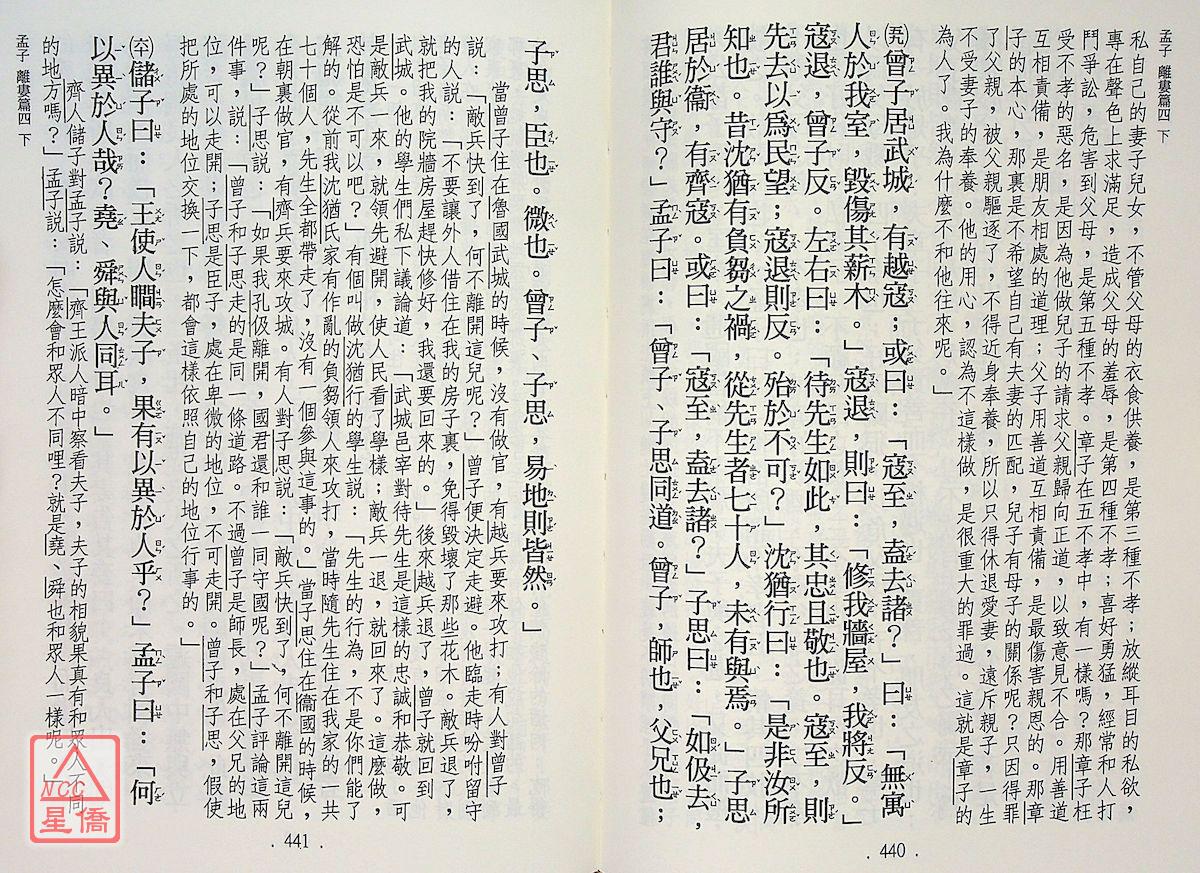 孟子 離婁篇四 下
私自己的妻子兒女，不管父母的衣食供養，是第三種不孝；放縱耳目的私欲，
專在聲色上求滿足，造成父母的羞辱，是第四種不孝；喜好勇猛，經常和人打
鬥爭訟，危害到父母，是第五種不孝。章子在五不孝中，有一樣嗎？那章子枉
受不孝的惡名，是因為他做兒子的請求父親歸向正道，以致意見不合。用善道
互相責備，是朋友相處的道理；父子用善道互相責備，是最傷害親恩的。那章
子的本心，那裏是不希望自己有夫妻的匹配，兒子有母子的關係呢？只因得罪
了父親，被父親驅逐了，不得近身奉養，所以只得休退愛妻，遠斥親子，一生
不受妻子的奉養。他的用心，認為不這樣做，是很重大的罪過。這就是章子的
為人了。我為什麼不和他往來呢。」
㉄曾子居武城，有越寇；或曰：「寇至，盍去諸？」曰：「無寓
人於我室，毀傷其薪木。」寇退，則曰：「修我牆屋，我將反。」
寇退，曾子反。左右曰：「待先生如此，其忠且敬也。寇至，則
先去以為民望；寇退則反。殆於不可？」沈猶行曰：「是非汝所
知也。昔沈猶有負芻之禍，從先生者七十人，未有與焉。」子思
居於衞，有齊寇。或曰：「寇至，盍去諸？」子思曰：「如伋去，
君誰與守？」孟子曰：「曾子、子思同道。曾子，師也，父兄也；
. 440 .
子思，臣也。微也。曾子、子思，易地則皆然。」
當曾子住在魯國武城的時候，沒有做官，有越兵要來攻打；有人對曾子
說：「敵兵快到了，何不離開這兒呢？」曾子便決定走避。他臨走時吩咐留守
的人說：「不要讓外人借住在我的房子裏，免得毀壞了那些花木。敵兵退了，
就把我的院牆房屋趕快修好，我還要回來的。」後來越兵退了，曾子就回到
武城。他的學生們私下議論道：「武城邑宰對待先生是這樣的忠誠和恭敬。可
是敵兵一來，就領先避開，使人民看了學樣；敵兵一退，就回來了。這麼做，
恐怕是不可以吧？」有個叫做沈猶行的學生說：「先生的行為，不是你們能了
解的。從前我沈猶氏家有作亂的負芻領人來攻打，當時隨先生住在我家的一共
七十個人，先生全都帶走了，沒有一個參與這事的。」當子思住在衞國的時候，
在朝裏做官，有齊兵要來攻城。有人對子思說：「敵兵快到了，何不離開這兒
呢？」子思說：「如果我孔伋離開，國君還和誰一同守國呢？」孟子評論這兩
件事，說：「曾子和子思走的是同一條道路。不過曾子是師長，處在父兄的地
位，可以走開；子思是臣子，處在卑微的地位，不可走開。曾子和子思，假使
把所處的地位交換一下，都會這樣依照自己的地位行事的。」
儲子曰：「王使人瞯夫子，果有以異於人乎？」孟子曰：「何
以異於人哉？堯、舜與人同耳。」
齊人儲子對孟子說：「齊王派人暗中察看夫子，夫子的相貌果真有和眾人不同
的地方嗎？」孟子說：「怎麼會和眾人不同哩？就是堯、舜也和眾人一樣呢。」
孟子 離婁篇四 下
. 441 .
NCC
星僑